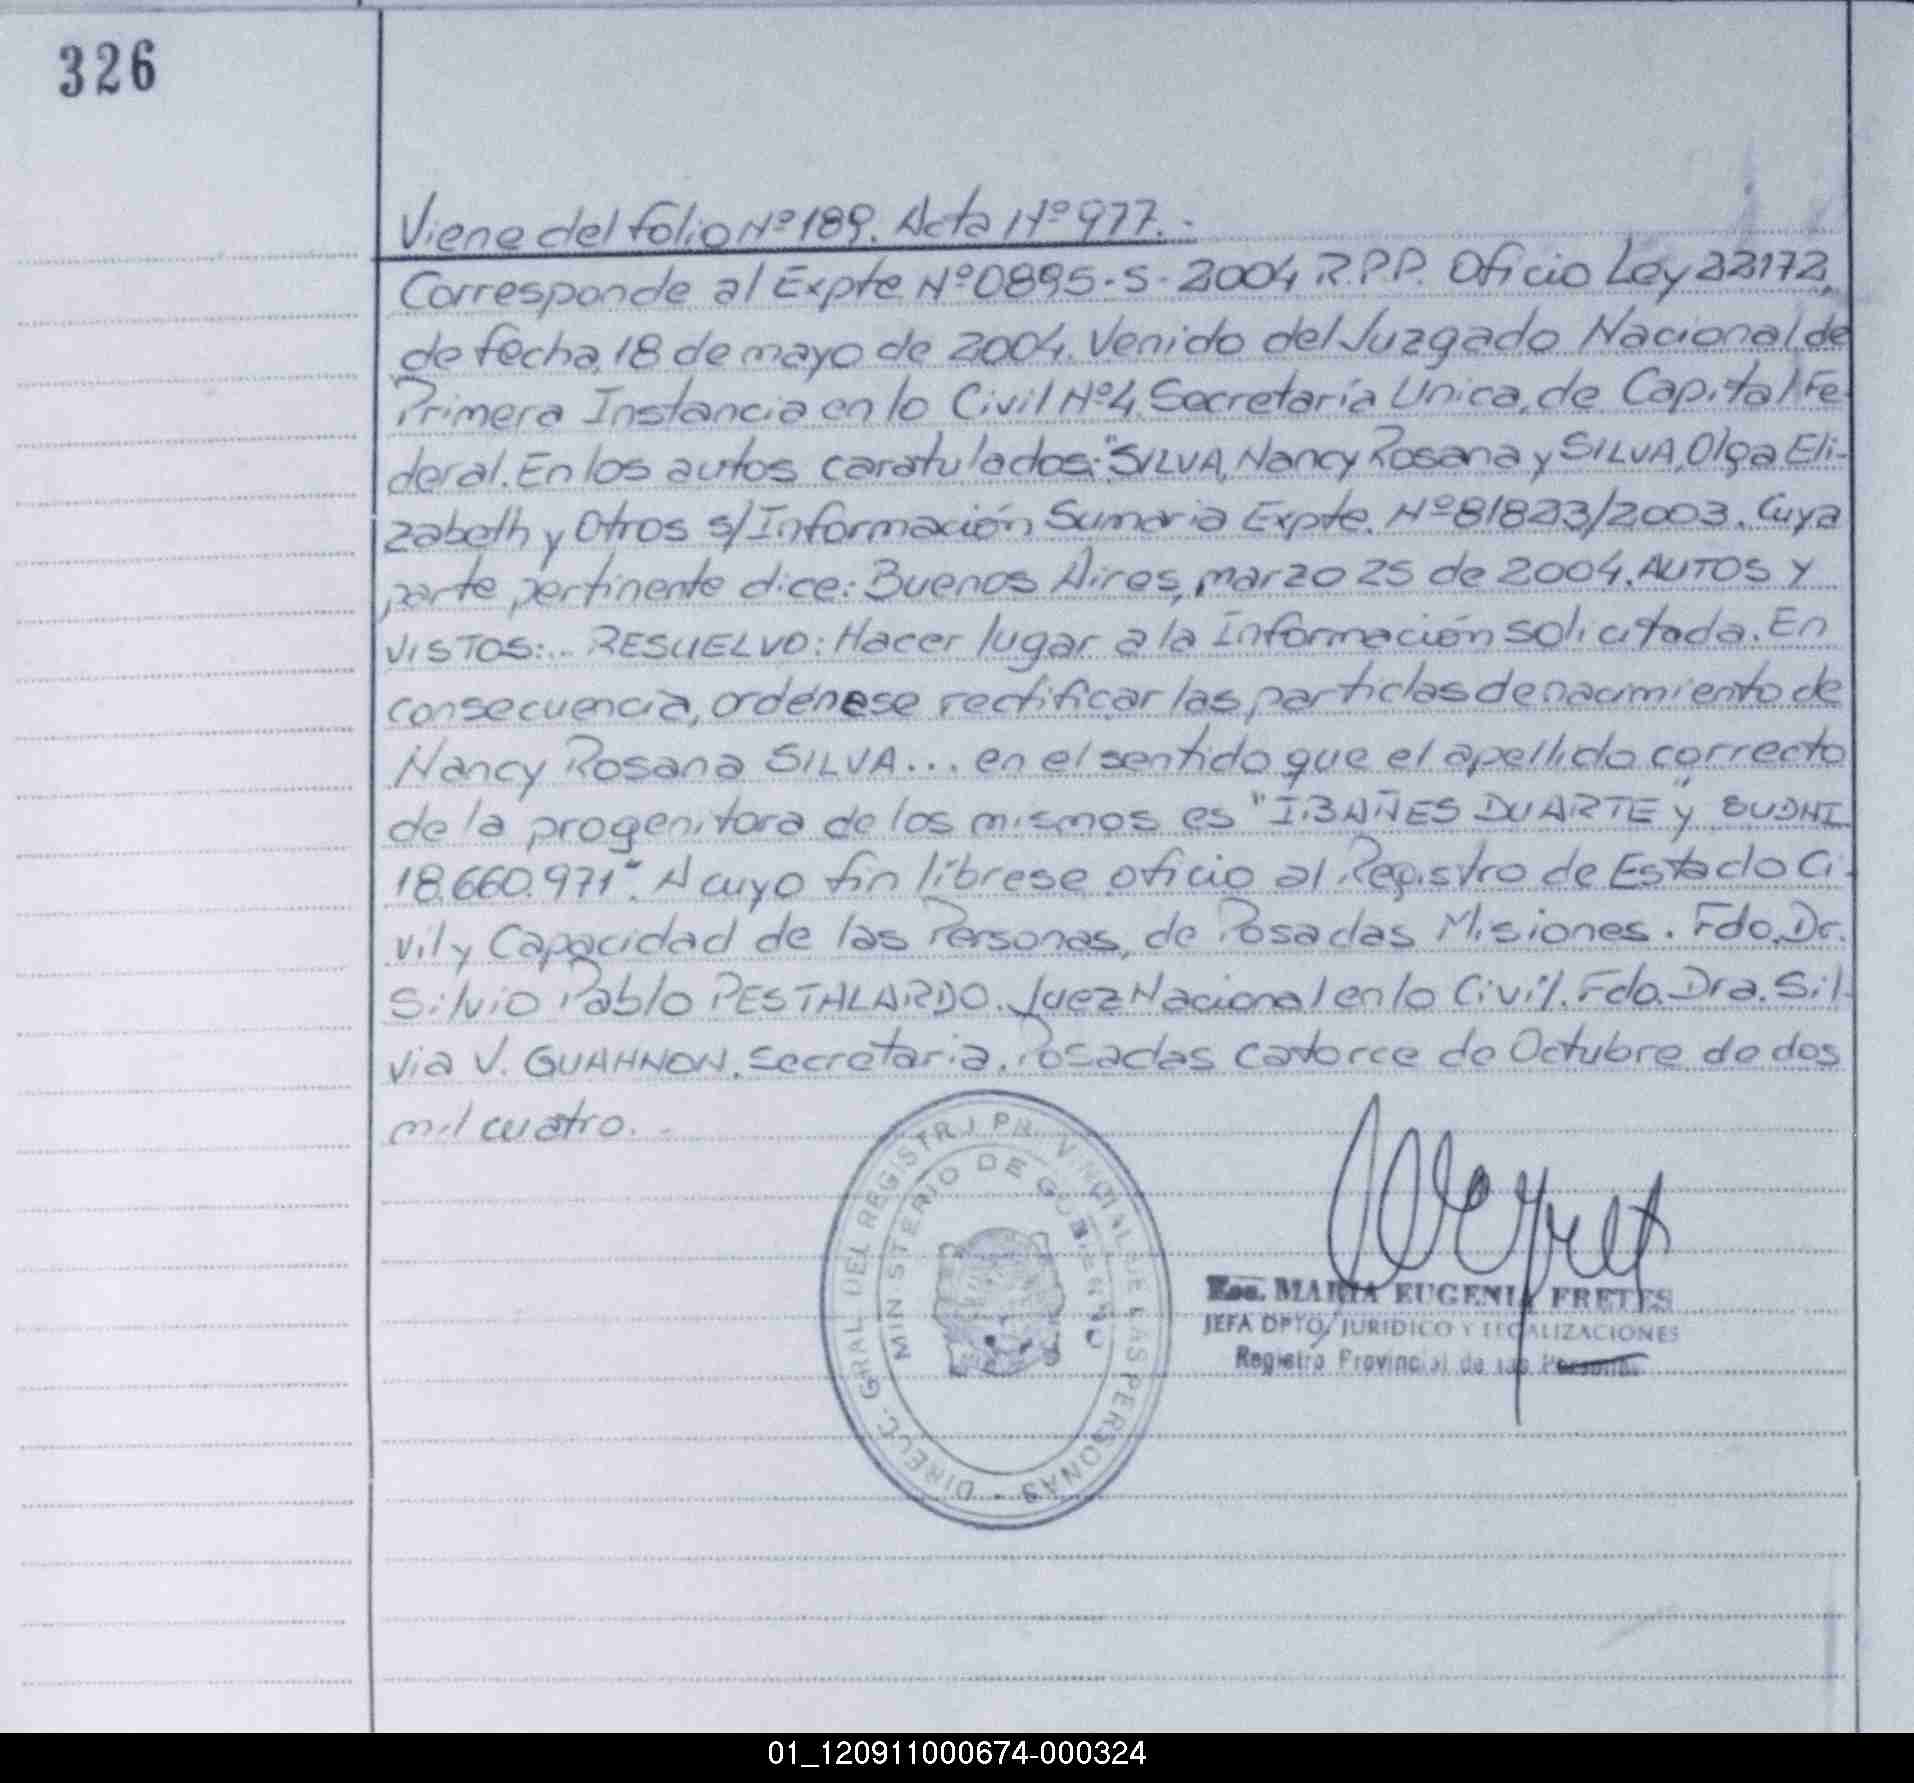 326
Viene del folio Nº 189. Acta Nº 977.-
Corresponde al Expte Nº 0895-S-2004 R.P.P. Oficio Ley 22172,
de fecha, 18 de mayo de 2004. Venido del Juzgado Nacional de
Primera Instancia en lo Civil Nº 4 Secretaría Unica, de Capital Fe-
deral. En los autos caratulados: "SILVA, Nancy Rosana y SILVA, Olga Eli-
zabeth y Otros s/Información Sumaria Expte. Nº 81823/2003. Cuya
parte pertinente dice: Buenos Aires, marzo 25 de 2004. AUTOS Y
VISTOS:.. RESUELVO: Hacer lugar a la Información solicitada. En
consecuencia, ordénese rectificar las particlas de nacimiento de
Nancy Rosana SILVA... en el sentido que el apellido correcto
de la progenitora de los mismos es "IBAÑES DUARTE" y SU DNI
18.660.971". A cuyo fin líbrese oficio al Registro de Estado Ci-
vil y Capacidad de las Personas, de Posadas Misiones. Fdo. Dr.
Silvio Pablo PESTALARDO. Juez Nacional en lo Civil. Fdo. Dra. Sil-
via V. GUAHNON. Secretaria. Posadas catorce de Octubre de dos
mil cuatro. -
DIRECC. GRAL DEL REGISTRO PROVINCIAL DE LAS PERSONAS -
MINISTERIO DE GOBIERNO
Esc. MARIA EUGENIA FRETES
JEFA DPTO. JURIDICO Y LEGALIZACIONES
Registro Provincial de las Personas
01_120911000674-000324